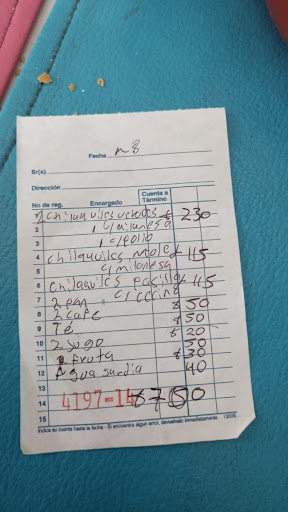 Fecha m8
Sr(a).
Dirección
No de reg. Encargado Cuenta a Término
1 2 chilaquiles verdes $ 230
2 1 c/milanesa
3 1 c/pollo
4 chilaquiles mole $ 115
5 c/milanesa
6 chilaquiles pasilla $ 115
7 2 pan c/cecina $ 50
8 2 cafe $ 50
9 Té $ 20
10 2 jugo 50
11 fruta $ 30
12 Agua sandia 40
13
14 4197-14 670
15
Indica su cuenta hasta la fecha - Si encuentra algún error, devuélvalo inmediatamente.